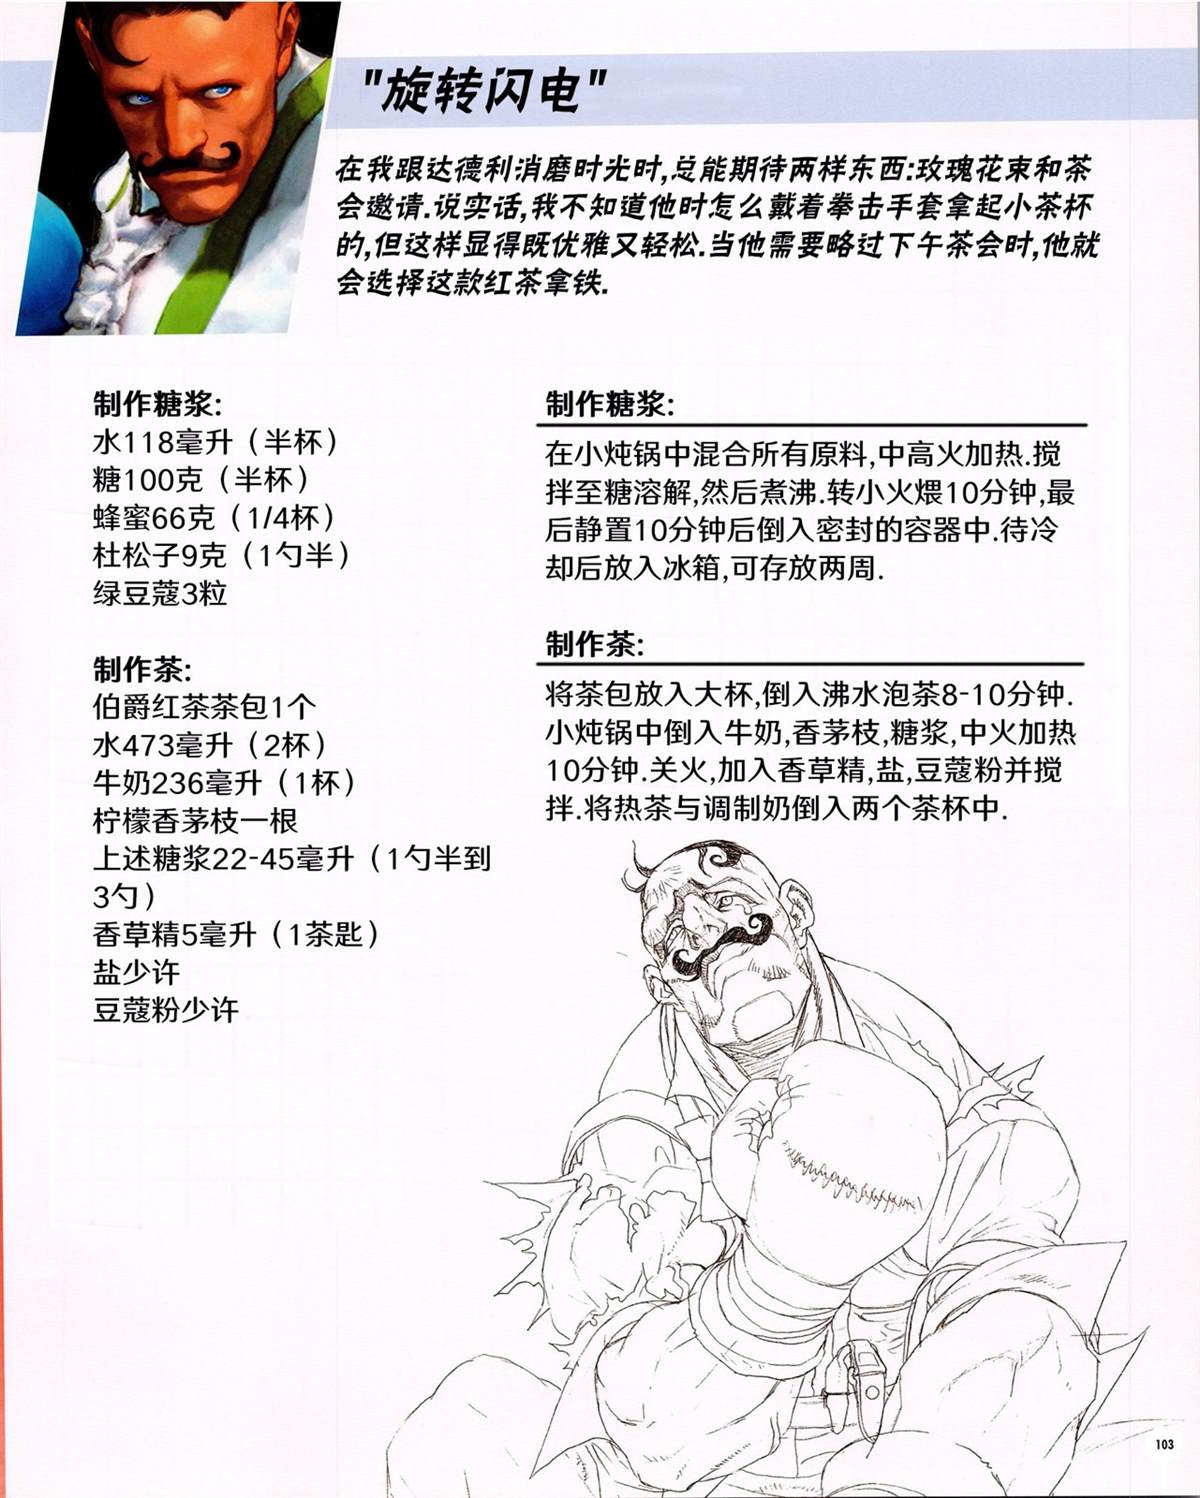 "旋转闪电"
在我跟达德利消磨时光时,总能期待两样东西:玫瑰花束和茶
会邀请.说实话,我不知道他时怎么戴着拳击手套拿起小茶杯
的,但这样显得既优雅又轻松.当他需要略过下午茶会时,他就
会选择这款红茶拿铁.
制作糖浆:
水118毫升（半杯）
糖100克（半杯）
蜂蜜66克（1/4杯）
杜松子9克（1勺半）
绿豆蔻3粒
制作茶:
伯爵红茶茶包1个
水473毫升（2杯）
牛奶236毫升（1杯）
柠檬香茅枝一根
上述糖浆22-45毫升（1勺半到
3勺）
香草精5毫升（1茶匙）
盐少许
豆蔻粉少许
制作糖浆:
在小炖锅中混合所有原料,中高火加热.搅
拌至糖溶解,然后煮沸.转小火煨10分钟,最
后静置10分钟后倒入密封的容器中.待冷
却后放入冰箱,可存放两周.
制作茶:
将茶包放入大杯,倒入沸水泡茶8-10分钟.
小炖锅中倒入牛奶,香茅枝,糖浆,中火加热
10分钟.关火,加入香草精,盐,豆蔻粉并搅
拌.将热茶与调制奶倒入两个茶杯中.
103